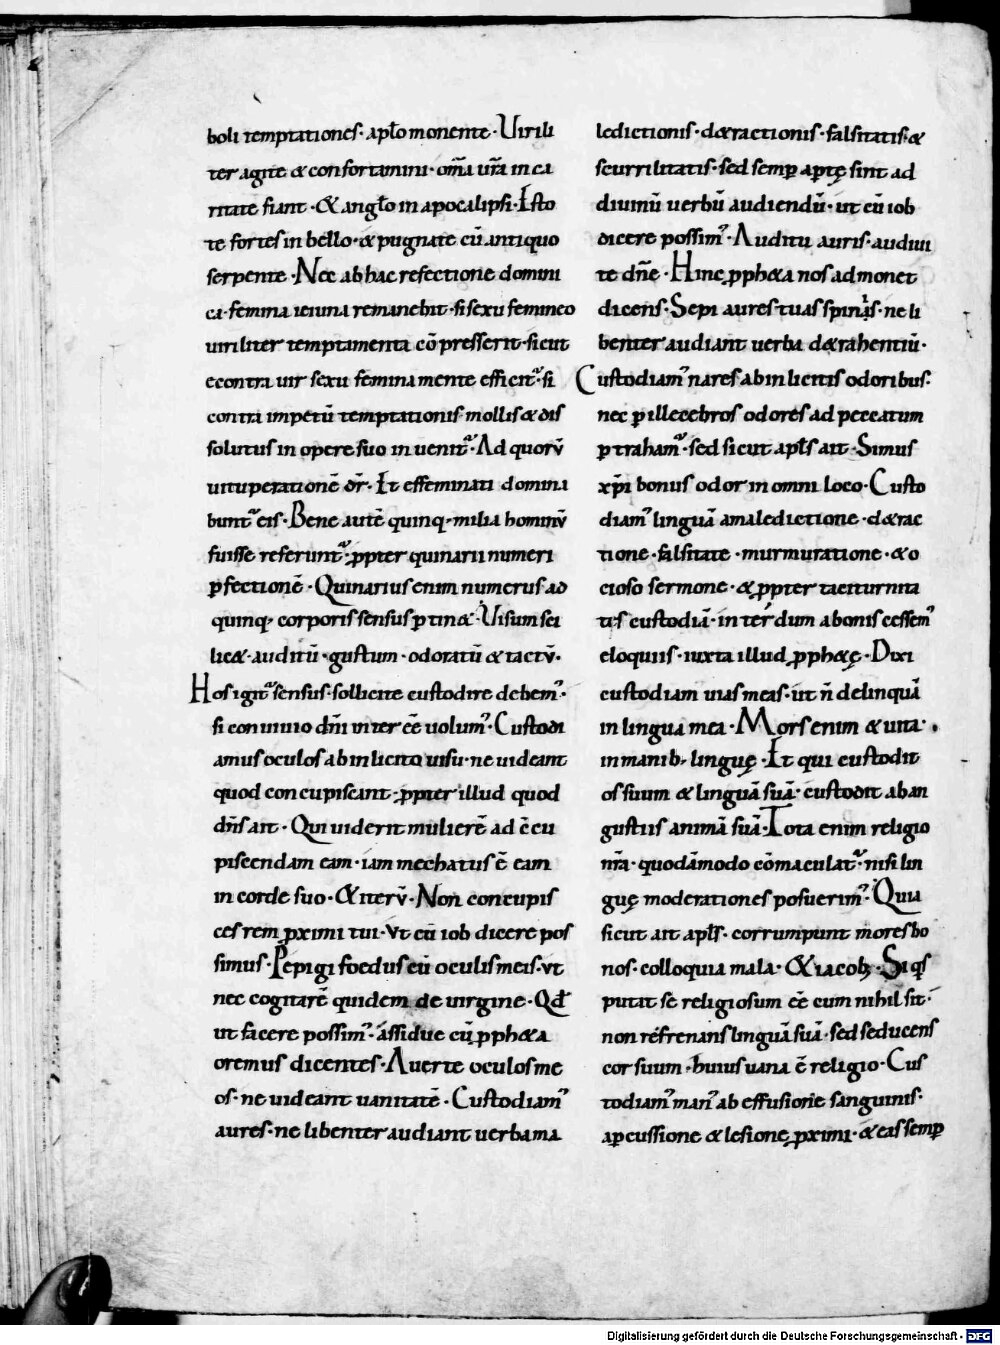 boli temptationes· apło monente· Virili
ter agite & confortamini· om̅a ur̅a in ca
ritate fiant· & angło in apocalipsi· Esto
te fortes in bello· & pugnate cū antiquo
serpente· Nec ab hac refectione domini
ca· femina ieiuna remanebit· si sexu femineo
uiriliter temptamenta cōpresserit· sicut
econtra uir sexu feminamente efficit᷑· si
contra impetū temptationis· mollis & dis
solutus in opere suo inuenit᷑· Ad quorū
uituperationē dr̅· Et effeminati domina
bunt᷑ eis· Bene autē quinq; milia hominū
fuisse referunt᷑· ꝓpter quinarii numeri
ꝑfectionē· Quinarius enim numerus ad
quinq; corporis sensus ꝑtin&· Visum sci
lic&· auditū· gustum· odoratū & tactū·
Hos igit᷑ sensus· sollicite custodire debem᷒·
si conuiuio dn̅i inter ee̅ volum᷒· Custodi
amus oculos ab inlicito uisu· ne uideant
quod concupiscant· ꝓpter illud quod
dn̅s ait· Qui uiderit mulierē ad c̅cu
piscendam eam· iam mechatus ē eam
in corde suo· & iterū· Non concupis
ces rem ꝓximi tui· vt cū iob dicere pos
simus· Pepigi foedus cū oculis meis· vt
nec cogitarē quidem de uirgine· Qd̅
ut facere possim᷒· assidue cū ꝓph&a
oremus dicentes· Auerte oculos me
os· ne uideant uanitatē· Custodiam᷒
aures· ne libenter audiant uerba ma
ledictionis· d&ractionis· falsitatis· &
scurrilitatis· sed semꝑ aptę sint ad
diuinū uerbū audiendū· ut cū iob
dicere possim᷒· Auditu auris· audiui
te dn̅e· Hinc ꝓph&a nos admonet
dicens· Sepi aures tuas spinis· ne li
benter audiant uerba d&rahentiū·
Custodiam᷒ nares ab inlicitis odoribus·
nec ꝑ illecebros odores ad peccatum
ꝑtraham᷒· sed sicut apłs ait· Simus
xp̅i bonus odor in omni loco· Custo
diam᷒ linguā a maledictione· d&rac
tione· falsitate· murmuratione· & o
cioso sermone· & ꝓpter taciturnita
tis custodiā· interdum a bonis cessem᷒
eloquiis· iuxta illud ꝓph&ę· Dixi
custodiam uias meas· ut n̅ delinquā
in lingua mea· Mors enim & uita·
in manib; linguę· Et qui custodit
os suum & linguā suā· custodit ab an
gustiis animā suā· Tota enim religio
nr̅a· quodāmodo cōmaculat᷑· nisi lin
guę moderationes posuerim᷒· Quia
sicut ait apłs· corrumpunt mores bo
nos· colloquia mala· & iacob;· Si qs
putat se religiosum ee̅ cum nihil sit·
non refrenans linguā suā· sed seducens
cor suum· huius uana ē religio· Cus
todiam᷒ man᷒ ab effusione sanguinis·
a ꝑcussione & lesione ꝓximi· & eas semꝑ
Digitalisierung gefördert durch die Deutsche Forschungsgemeinschaft - DFG